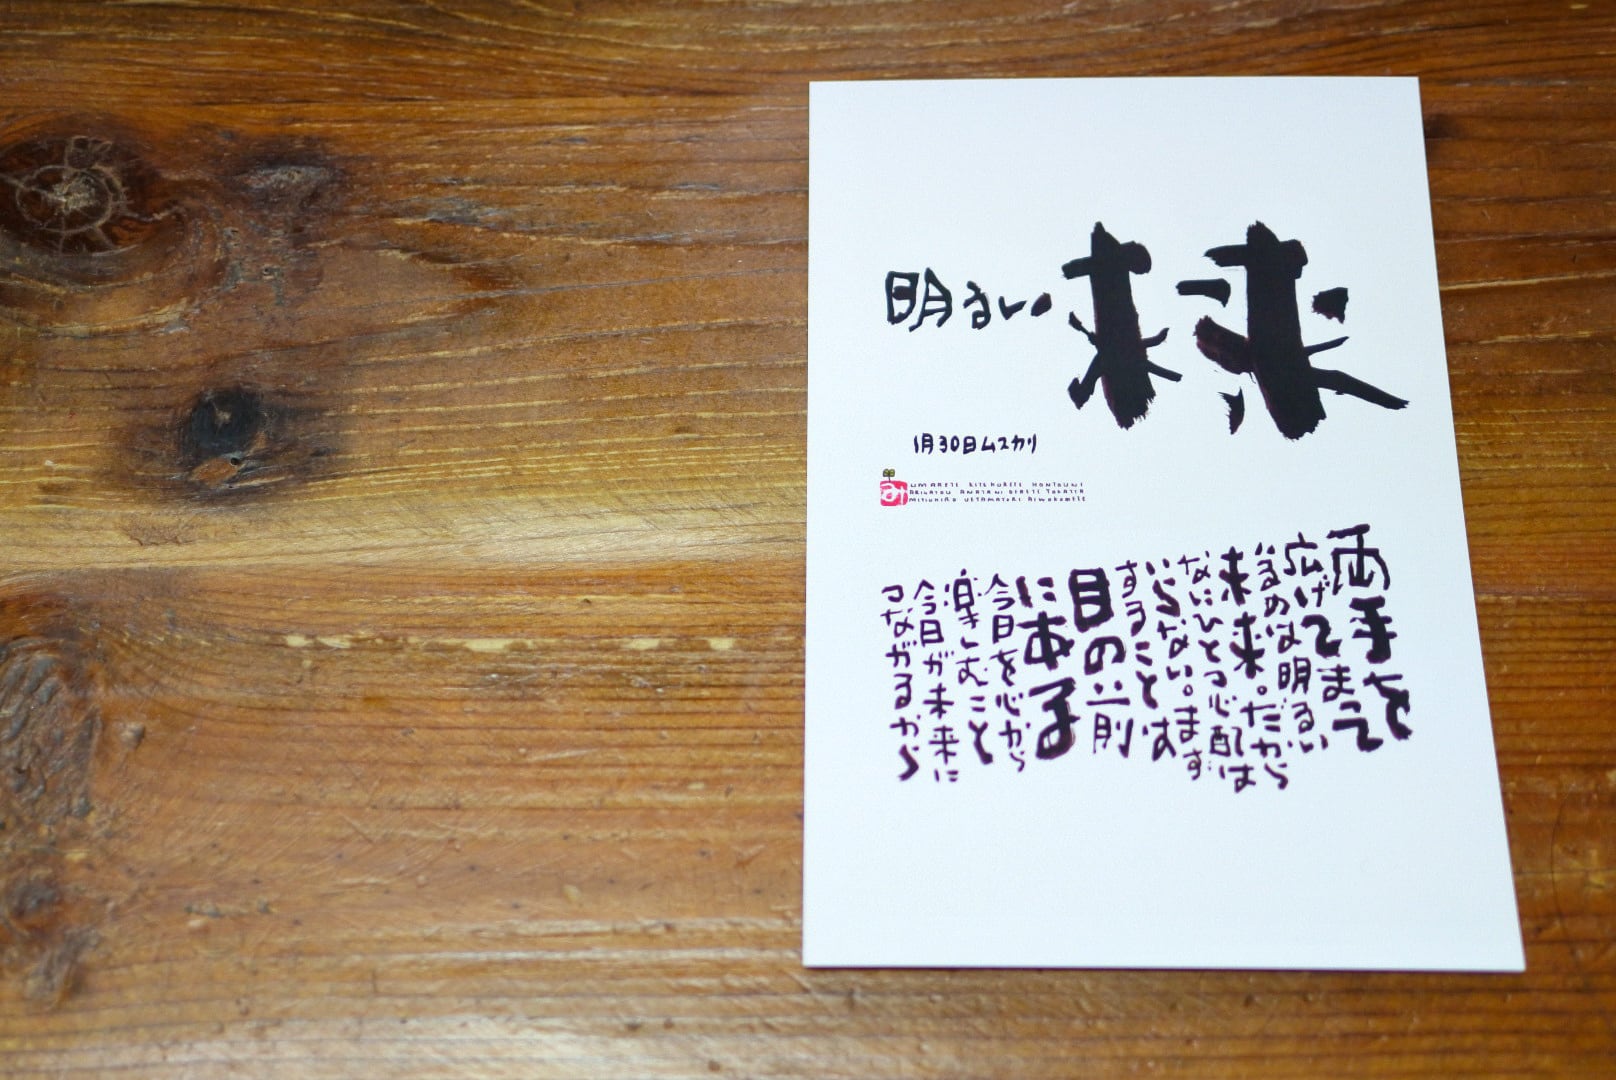 明るい未来
1月30日ムスカリ
み
UMARETE KITEKURETE HONTOUNI
ARIGATOU ANATANI DEAETE YOKATTA
両手を
広げてまって
いるのは明るい
未来。だから
なにひとつ心配は
いらない。まず
することは
目の前
にある
今日を心から
楽しむこと
今日が未来に
つながるから